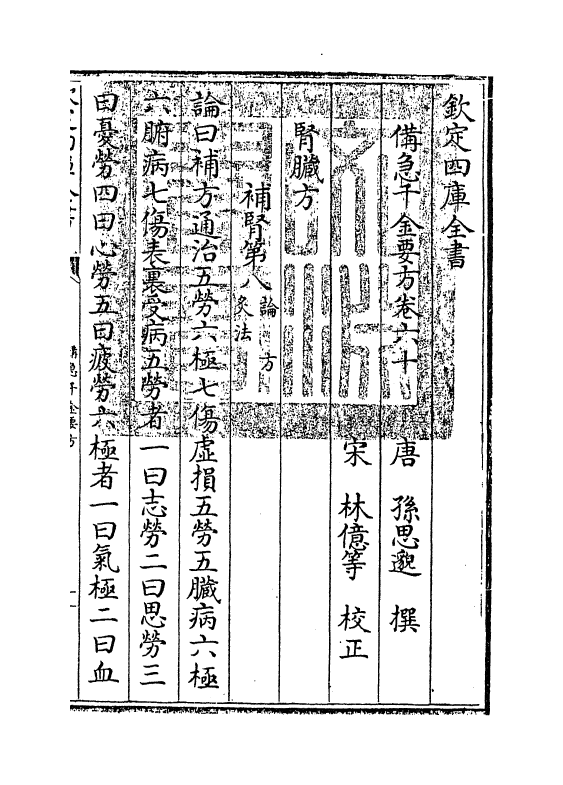 欽定四庫全書
備急千金要方卷六十
唐 孫思邈 撰
宋 林億等 校正
腎臟方
補腎第八 論 方 灸法
論曰補方通治五勞六極七傷虛損五勞五臟病六極
六腑病七傷表裏受病五勞者一曰志勞二曰思勞三
曰憂勞四曰心勞五曰疲勞六極者一曰氣極二曰血
備急千金要方